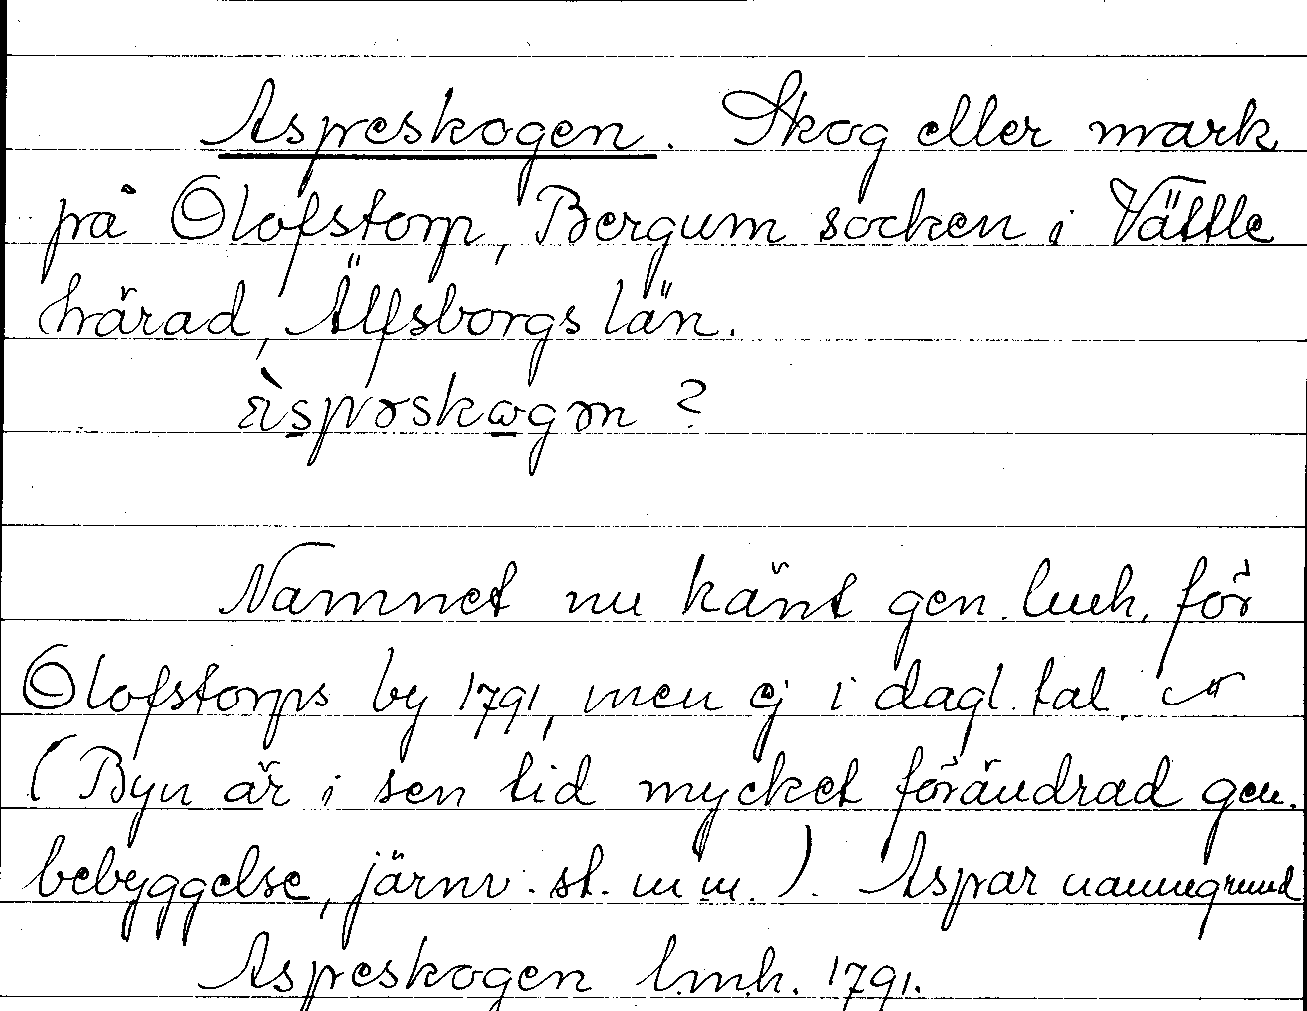 Aspreskogen. Skog eller mark
på Olofstorp, Bergum socken i Vättle
härad, Älfsborgs län.
Namnet nu känt gen. lmh. för
Olofstorps by 1791, men ej i dagl. tal.
(Byn är i sen tid mycket förändrad gen.
bebyggelse, järnv. st. m. m.). Aspar namngrund
Aspreskogen lmh. 1791.